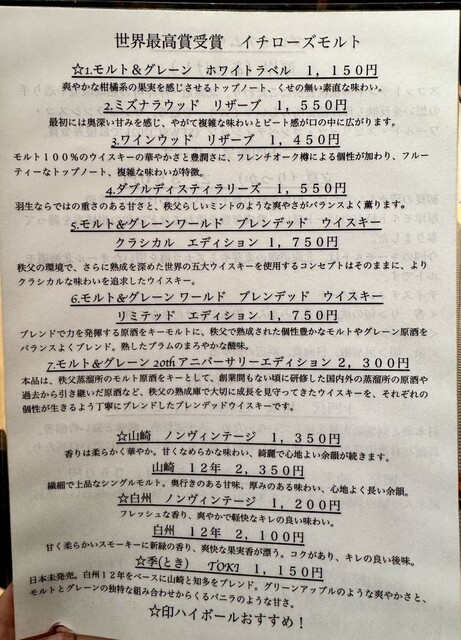 世界最高賞受賞　イチローズモルト
☆1.モルト＆グレーン　ホワイトラベル　1，150円
爽やかな柑橘系の果実を感じさせるトップノート、くせの無い素直な味わい。
2.ミズナラウッド　リザーブ　1，550円
最初には奥深い甘みを感じ、やがて複雑な味わいとピート感が口の中に広がります。
3.ワインウッド　リザーブ　1，450円
モルト100％のウイスキーの華やかさと豊潤さに、フレンチオーク樽による個性が加わり、フルー
ティーなトップノート、複雑な味わいが特徴。
4.ダブルディスティラリーズ　1，550円
羽生ならではの重さのある甘さと、秩父らしいミントのような爽やさがバランスよく薫ります。
5.モルト&グレーンワールド　ブレンデッド　ウイスキー
クラシカル　エディション　1，750円
秩父の環境で、さらに熟成を深めた世界の五大ウイスキーを使用するコンセプトはそのままに、より
クラシカルな味わいを追求したウイスキー。
6.モルト&グレーン ワールド　ブレンデッド　ウイスキー
リミテッド　エディション　1，750円
ブレンドで力を発揮する原酒をキーモルトに、秩父で熟成された個性豊かなモルトやグレーン原酒を
バランスよくブレンド。熟したプラムのまろやかな酸味。
7.モルト&グレーン 20th アニバーサリーエディション 2，300円
本品は、秩父蒸溜所のモルト原酒をキーとして、創業間もない頃に研修した国内外の蒸溜所の原酒や
過去から引き継いだ原酒など、秩父の熟成庫で大切に成長を見守ってきたウイスキーを、それぞれの
個性が生きるよう丁寧にブレンドしたブレンデッドウイスキーです。
☆山崎　ノンヴィンテージ　1，350円
香りは柔らかく華やか。甘くなめらかな味わい、綺麗で心地よい余韻が続きます。
山崎　12年　2，350円
繊細で上品なシングルモルト。奥行きのある甘味、厚みのある味わい、心地よく長い余韻。
☆白州　ノンヴィンテージ　1，200円
フレッシュな香り、爽やかで軽快なキレの良い味わい。
白州　12年　2，100円
甘く柔らかいスモーキーに新緑の香り、爽快な果実香が漂う。コクがあり、キレの良い後味。
☆季(とき)　TOKI　1，150円
日本未発売。白州12年をベースに山崎と知多をブレンド。グリーンアップルのような爽やかさと、
モルトとグレーンの独特な組み合わせからくるバニラのような甘さ。
☆印ハイボールおすすめ！